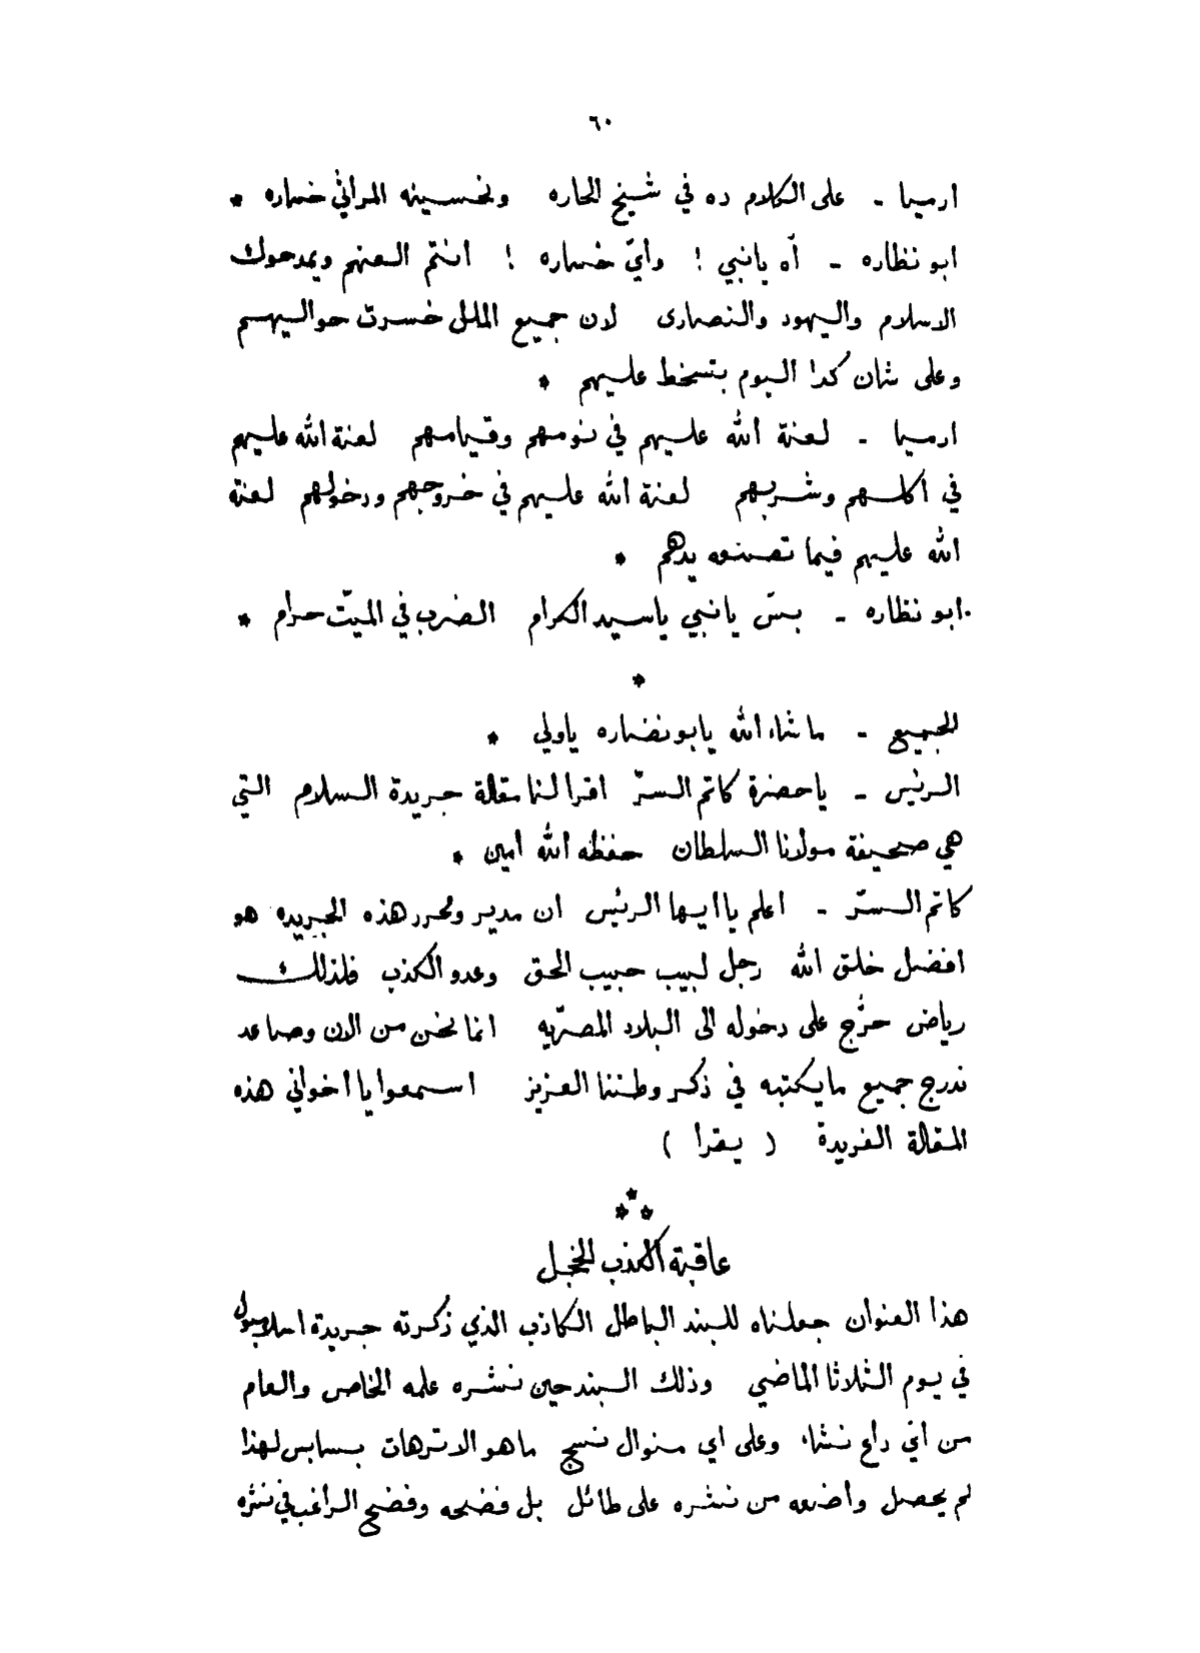 ٦٠
ارميا - على الكلام ده في شيخ الحاره ونحسينه المراثي خساره *
ابو نظاره - آه يانبي ! وأيّ خساره ! انتم العنهم ويمدحوك
الاسلام واليهود والنصارى لان جميع الملل خسرت حواليهم
وعلى شان كدا اليوم بتسخط عليهم *
ارميا - لعنة الله عليهم في نومهم وقيامهم لعنة الله عليهم
في اكلهم وشربهم لعنة الله عليهم في خروجهم ودخولهم لعنة
الله عليهم فيما تصنعه يدهم *
ابو نظاره - بسّ يانبي ياسيد الكرام الضرب في الميّت حرام *
*
الجميع - ماشاء الله يابو نضاره ياولي *
الرئيس - ياحضرة كاتم السرّ اقرا لنا مقالة جريدة السلام التي
هي صحيفة مولانا السلطان حفظه الله امين *
كاتم السرّ - اعلم يا ايها الرئيس ان مدير ومحرر هذه الجريده هو
افضل خلق الله رجل لبيب حبيب الحق وعدو الكذب فلذلك
رياض حرّج على دخوله الى البلاد المصريّه انما نحن من الان وصاعد
ندرج جميع مايكتبه في ذكر وطننا العزيز اسمعوا يا اخواني هذه
المقالة الفريدة ( يقرا )
***
عاقبة الكذب الخجل
هذا العنوان جعلناه للبند الباطل الكاذب الذي ذكرته جريدة اسلامبول
في يوم الثلاثا الماضي وذلك البند حين نشره علمه الخاص والعام
من ايّ داع نشاء وعلى اي منوال نسج ماهو الا ترهات بسابس لهذا
لم يحصل واضعه من نشره على طائل بل فضحه وفضح الراغب في نشره